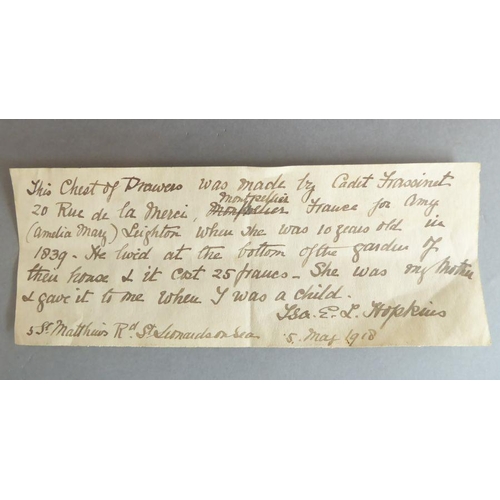 This Chest of Drawers was made by Cadet Frassinet
20 Rue de la Merci, Montpellier France for Amy
(Amelia Mary) Leighton when she was 10 years old in
1839 - He lived at the bottom of the garden of
their house & it cost 25 francs - She was my Mother
& gave it to me when I was a child.
Isa. E. L. Hopkins
5 St. Matthews Rd. St. Leonards on Sea 5. May 1918